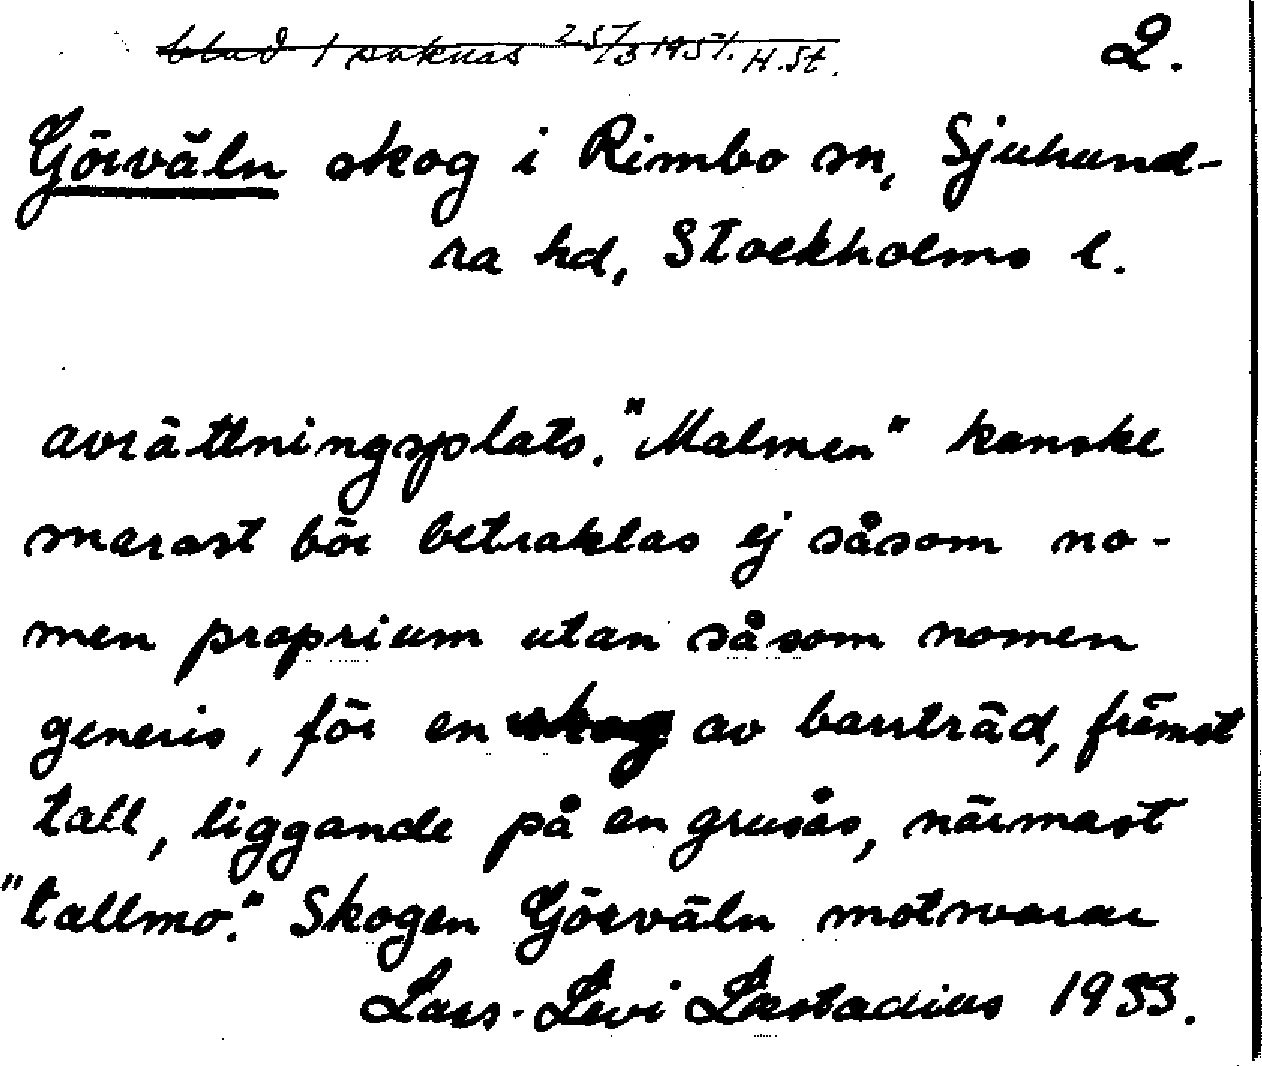 blad 1 saknas 25/3 1951. H. St.
2.
Görväln skog i Rimbo sn, Sjuhund-
ra hd, Stockholms l.
avrättningsplats. "Malmen" kanske
snarast bör betraktas ej såsom no-
men proprium utan såsom nomen
generis, för en skog av barrträd, främst
tall, liggande på en grusås, närmast
"tallmo". Skogen Görväln motsvarar
Lars-Levi Læstadius 1933.